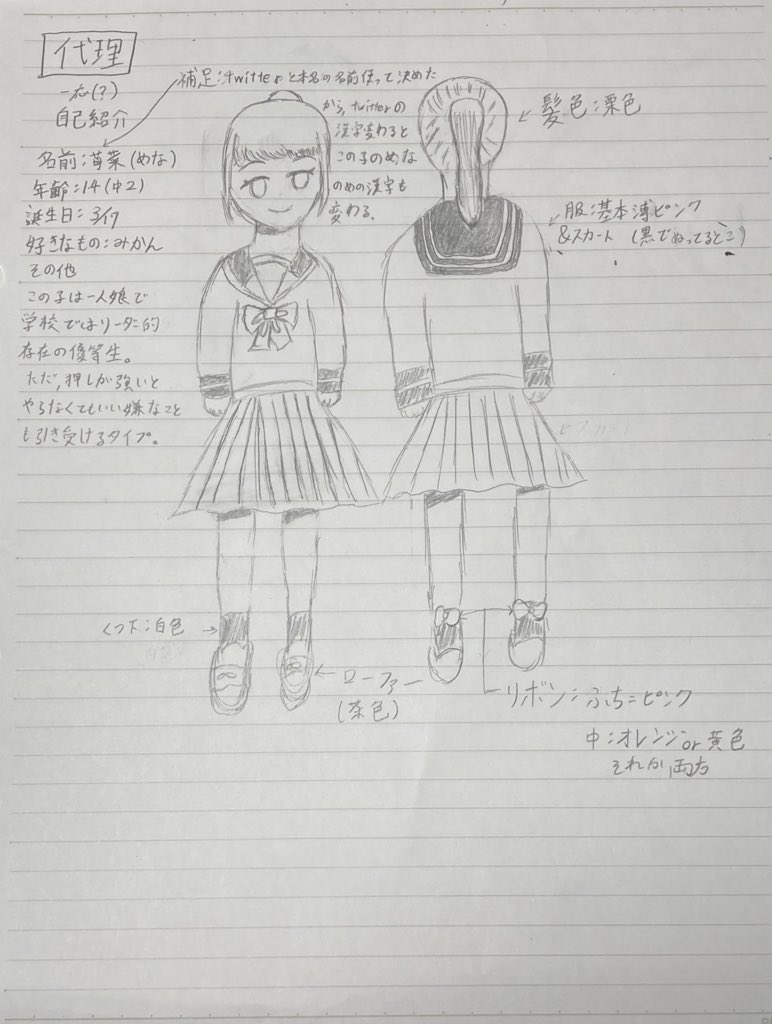 代理
一応(?)
自己紹介
補足:twitterと本名の名前使って決めた
から、twitterの
漢字変わると
この子のめな
のめの漢字も
変わる、
名前:苺菜(めな)
年齢:14(中2)
誕生日:
好きなもの:みかん
その他
この子は一人娘で
学校ではリーダー的
存在の優等生。
ただ、押しが強いと
やらなくてもいい嫌なこと
も引き受けるタイプ。
髪色:栗色
服:基本薄ピンク
&スカート (黒でぬってるとこ)
スカート
くつ下:白色
ローファー
(茶色)
リボン:ふち=ピンク
中:オレンジor黄色
それか両方